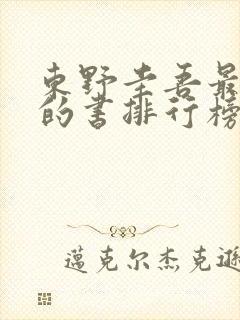 東野圭吾最
的书排行榜
邁克尔杰克遜